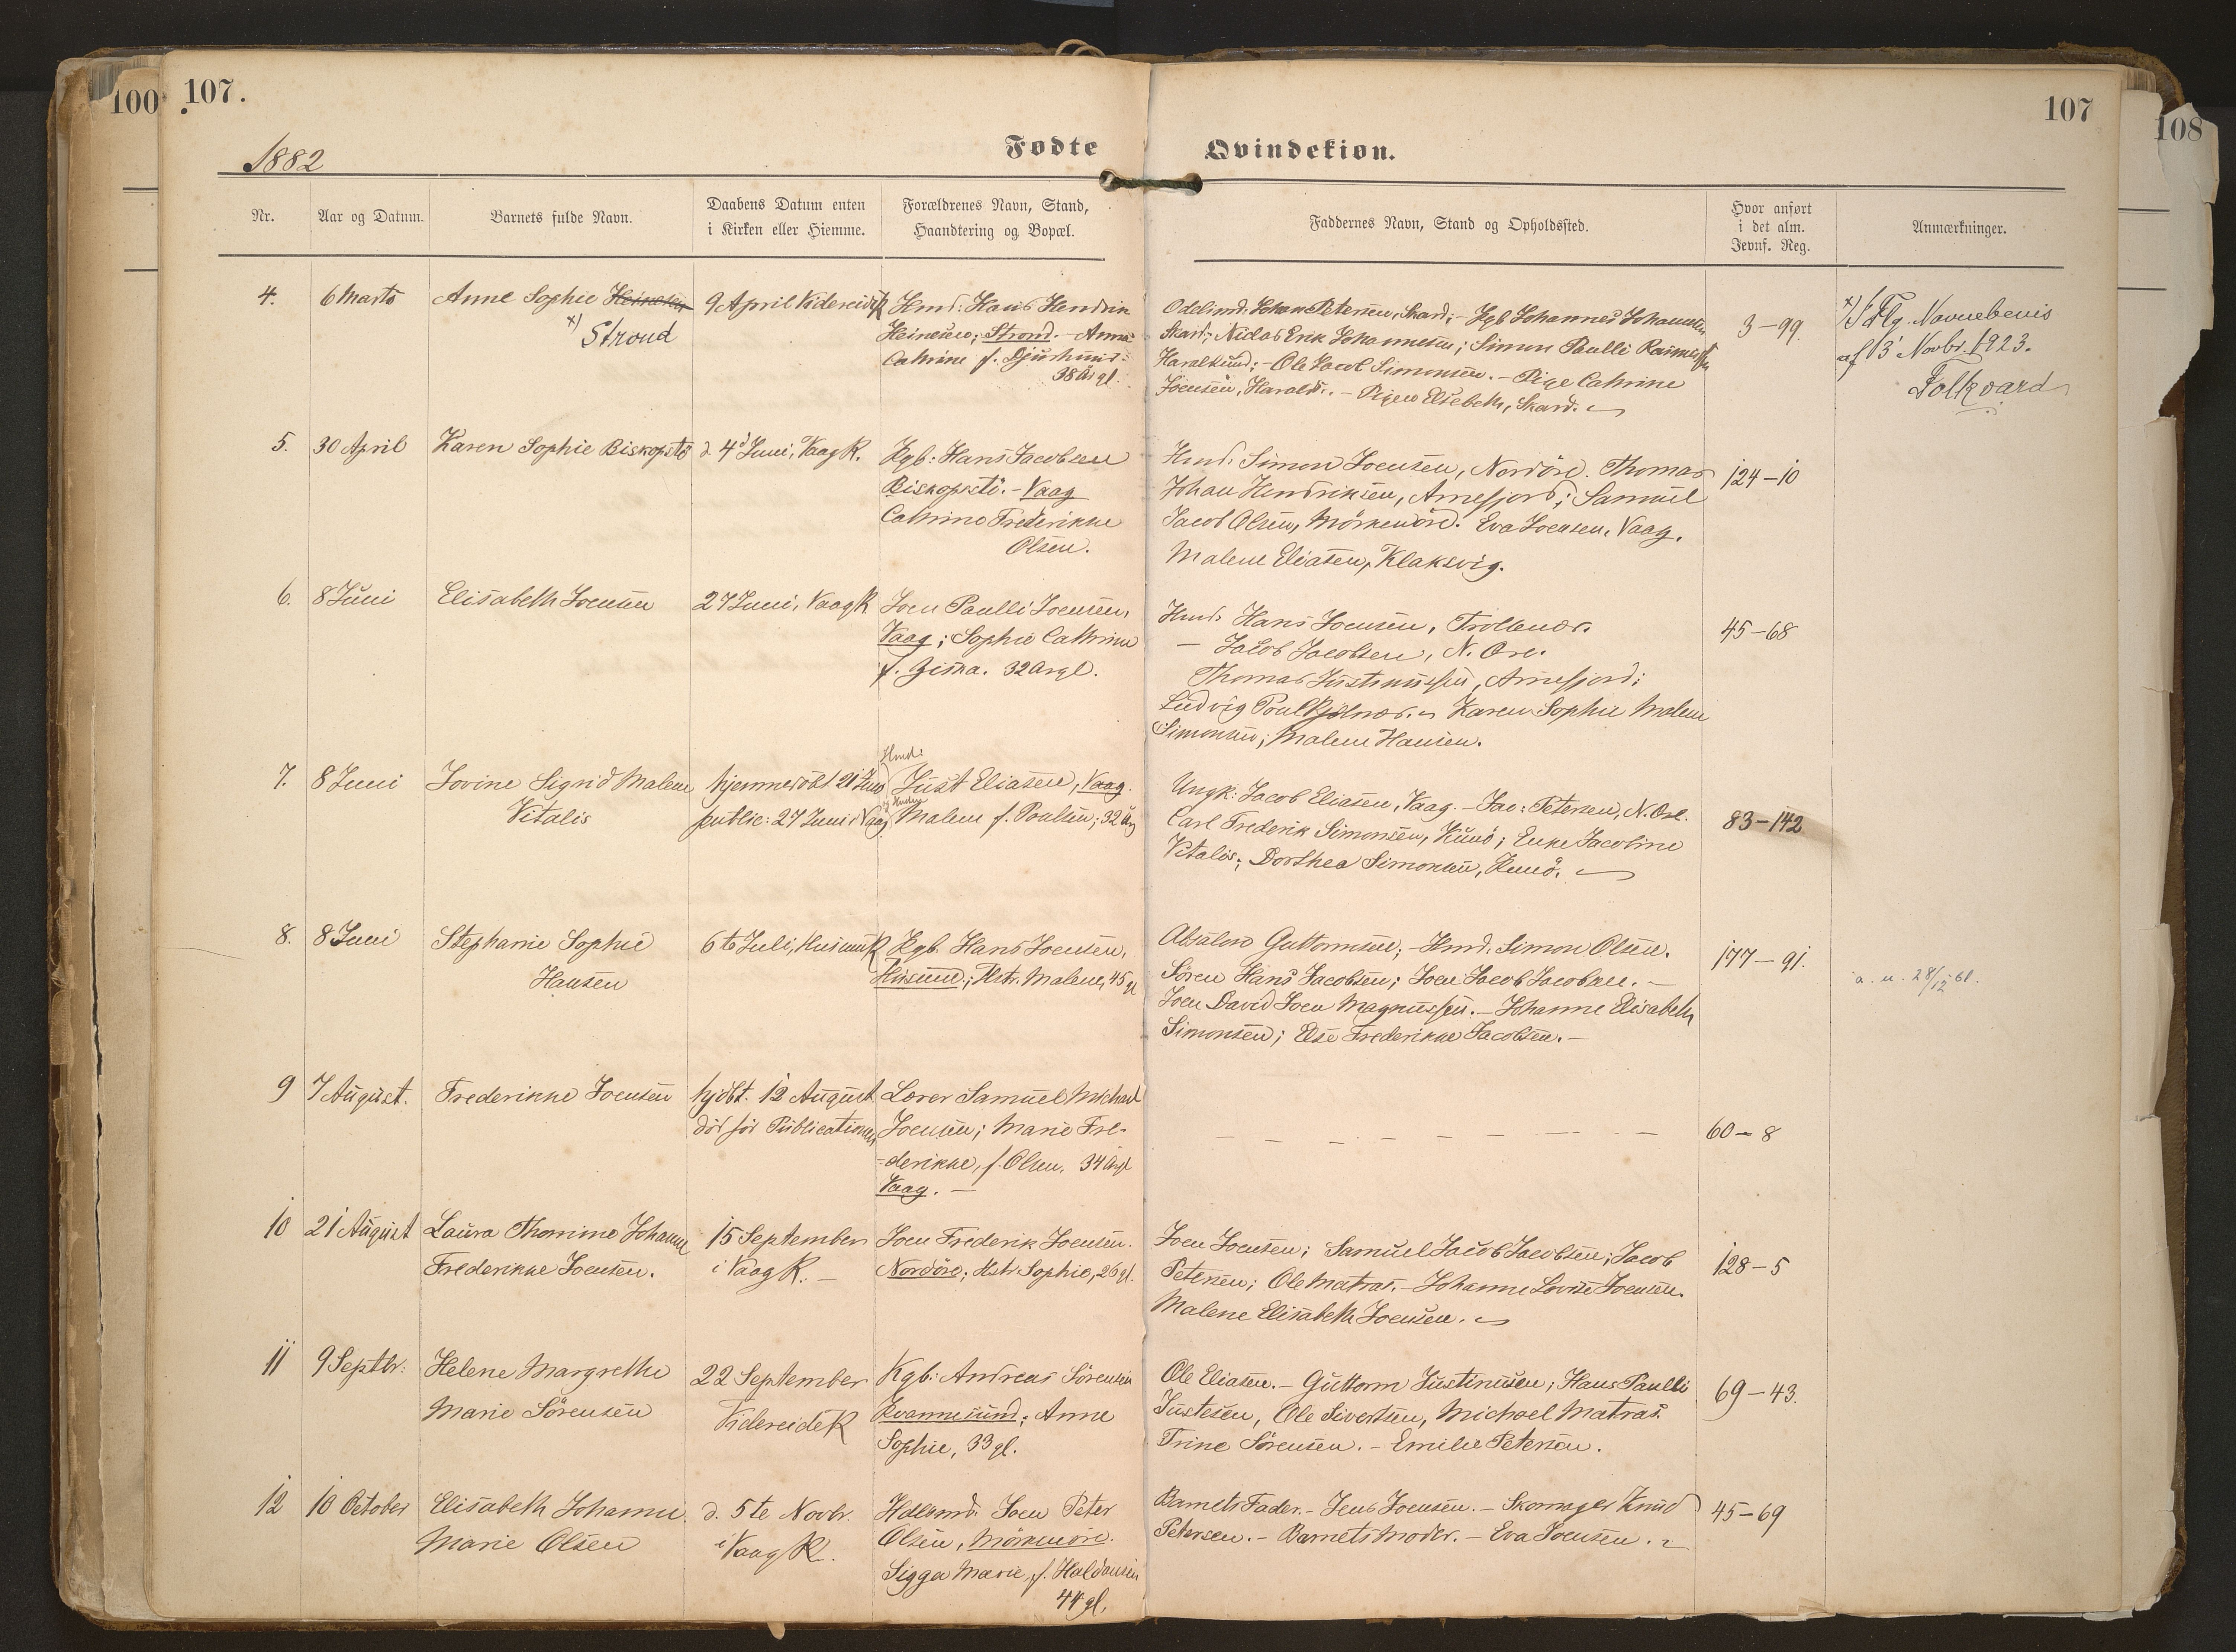 100
107.
107
108
1882
Fødte
Qvindekiøn.
Nr.
Aar og Datum.
Barnets fulde Navn.
Daabens Datum enten
i Kirken eller Hiemme.
Forældrenes Navn, Stand,
Haandtering og Bopæl.
Faddernes Navn, Stand og Opholdssted.
Hvor anført
i det alm.
Jevnf. Reg.
Anmærkninger.
4.
6 Marts
Anne Sophie Heinesen
x) Strond
9 April Videreide K
Hmd: Hans Hendrik
Heinesen; Strond. - Anna
Cathrine f. Djurhuus
38 År gl.
Odelsmd. Johan Petersen, Skard; - Kgb Johannes Johannesen
Skard; Niclas Erik Johannesen; Simon Paulli Rasmussen
Haraldsund; - Ole Jacob Simonsen. - Pige Cathrine
Joensen, Haralds. - Pigen Elsebeth, Skard.
3-99.
x) Iflg. Navnebevis
af 13' Novbr. 1923.
Folkvard
5.
30 April
Karen Sophie Biskopstö
d. 4d Juni, Vaag K.
Kgb: Hans Jacobsen
Biskopstö. - Vaag
Cathrine Frederikke
Olsen.
Hmd. Simon Joensen, Nordöre. Thomas
Johan Hendriksen, Arnefjord; Samuel
Jacob Olsen, Mörkenöre. Eva Joensen, Vaag.
Malene Eliasen, Klaksvig.
124-10
6.
8 Juni
Elisabeth Joensen
27 Juni, Vaag K
Joen Paulli Joensen,
Vaag; Sophie Cathrine
f. Ziska. 32 Aar gl.
Hmd. Hans Joensen, Trollenæs.
- Jacob Jacobsen, N. Öre.
Thomas Justinussen, Arnefjord;
Ludvig Poul Kjølnæs. Karen Sophie Malene
Simonsen; Malene Hansen.
45-68
7.
8 Juni
Jovine Sigrid Malene
Vitalis
hjemmedöbt 21 Juni
public: 27 Juni i Vaag
Hmd:
Just Eliasen, Vaag.
og Hustru
Malene f. Poulsen; 32 Aar
Ungk: Jacob Eliasen, Vaag. - Jac: Petersen, N. Öre.
Carl Frederik Simonsen, Kunö; Enke Jacobine
Vitalis; Dorthea Simonsen, Kunö.
83-142
8.
8 Juni
Stephanie Sophie
Hansen
6te Juli, Husum K
Kgb. Hans Joensen,
Husum; Hstr. Malene, 45 gl
Absalon Guttormsen; - Hmd. Simon Olsen.
Sören Hans Jacobsen; Joen Jacob Jacobsen. -
Joen David Joen Magnussen. - Johanne Elisabeth
Simonsen; Else Frederikke Jacobsen. -
177-91.
a. u. 28/12 61.
9
7 August.
Frederikke Joensen
hjdbt. 12 August
död för Publicationen
Lærer Samuel Michael
Joensen; Marie Fre-
-derikke, f. Olsen, 34 Aar gl
Vaag. -
60-8
10
21 August
Laura Thomine Johanne
Frederikke Joensen.
15 September
i Vaag K. -
Joen Frederik Joensen.
Nordöre; Hstr Sophie, 26 gl.
Joen Joensen; Samuel Jacob Jacobsen; Jacob
Petersen; Ole Matras. - Johanne Lovise Joensen.
Malene Elisabeth Joensen.
128-5
11
9 Septbr:
Helene Margrethe
Marie Sörensen
22 September
Videreide K
Kgb: Andreas Sörensen
Kvannesund; Anne
Sophie, 33 gl.
Ole Eliasen. - Guttorm Justinussen; Hans Paulli
Justesen, Ole Sivertsen, Michael Matras.
Trine Sörensen. - Emilie Petersen.
69-43.
12
10 October
Elisabeth Johanne
Marie Olsen
d. 5te Novbr.
i Vaag K.
Hdlsmd. Joen Peter
Olsen, Mörkenöre.
Sigga Marie, f. Haldansen
44 gl.
Barnets Fader. - Jens Joensen. - Skomager Knud
Petersen. - Barnets Moder. - Eva Joensen.
45-69